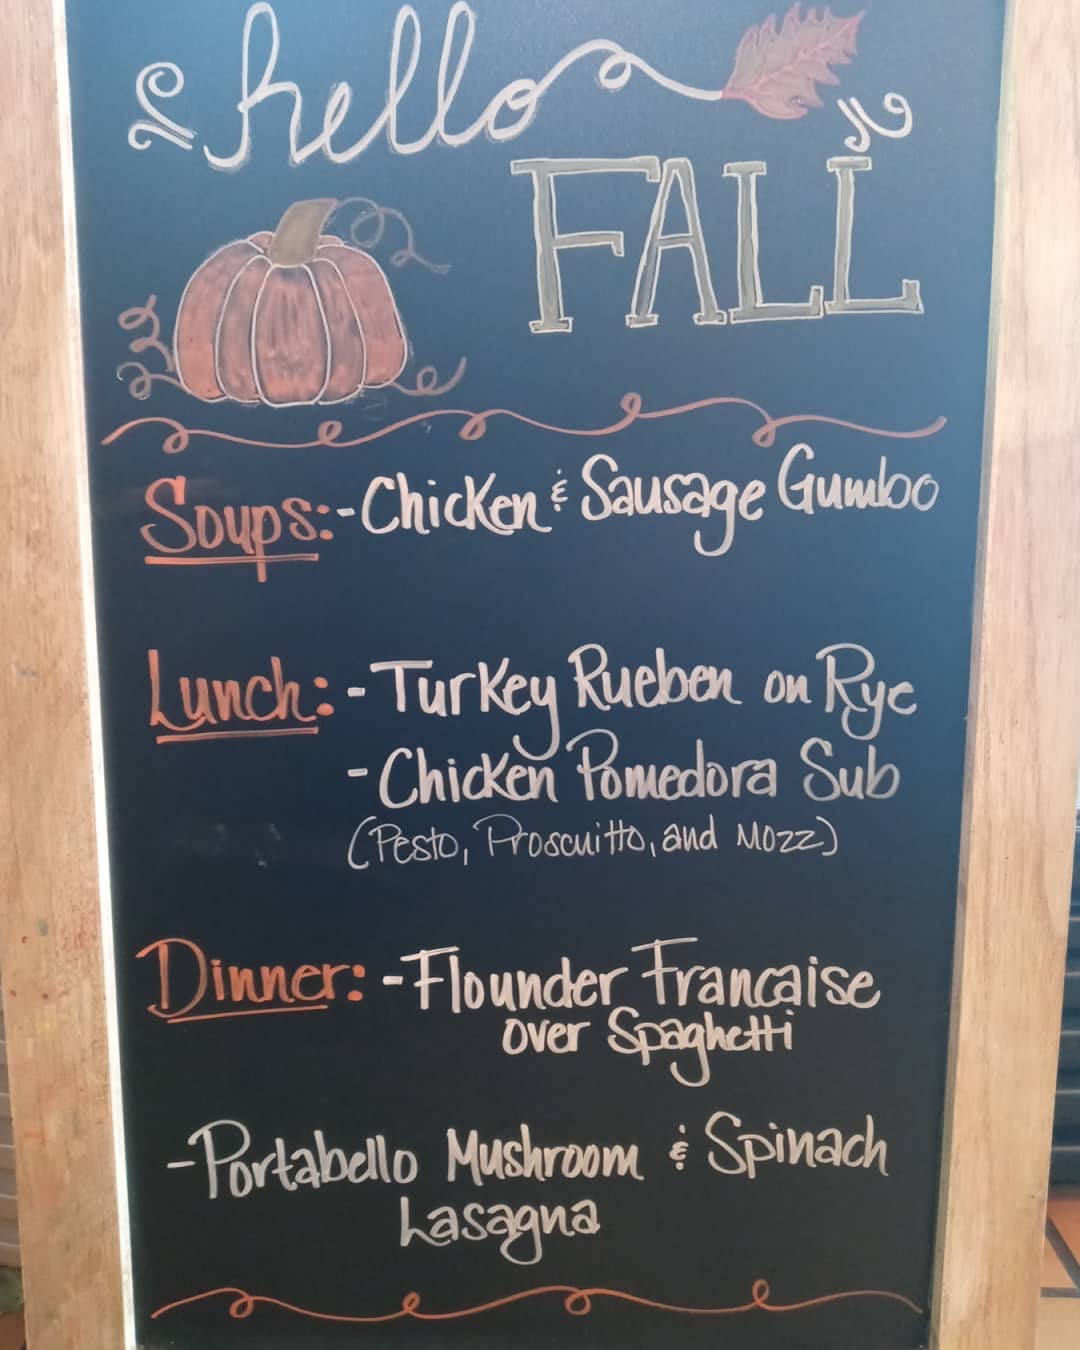 hello
FALL
Soups: - Chicken & Sausage Gumbo
Lunch: - Turkey Rueben on Rye
- Chicken Pomedora Sub
(Pesto, Proscuitto, and Mozz)
Dinner: - Flounder Francaise
over Spaghetti
- Portabello Mushroom & Spinach
Lasagna